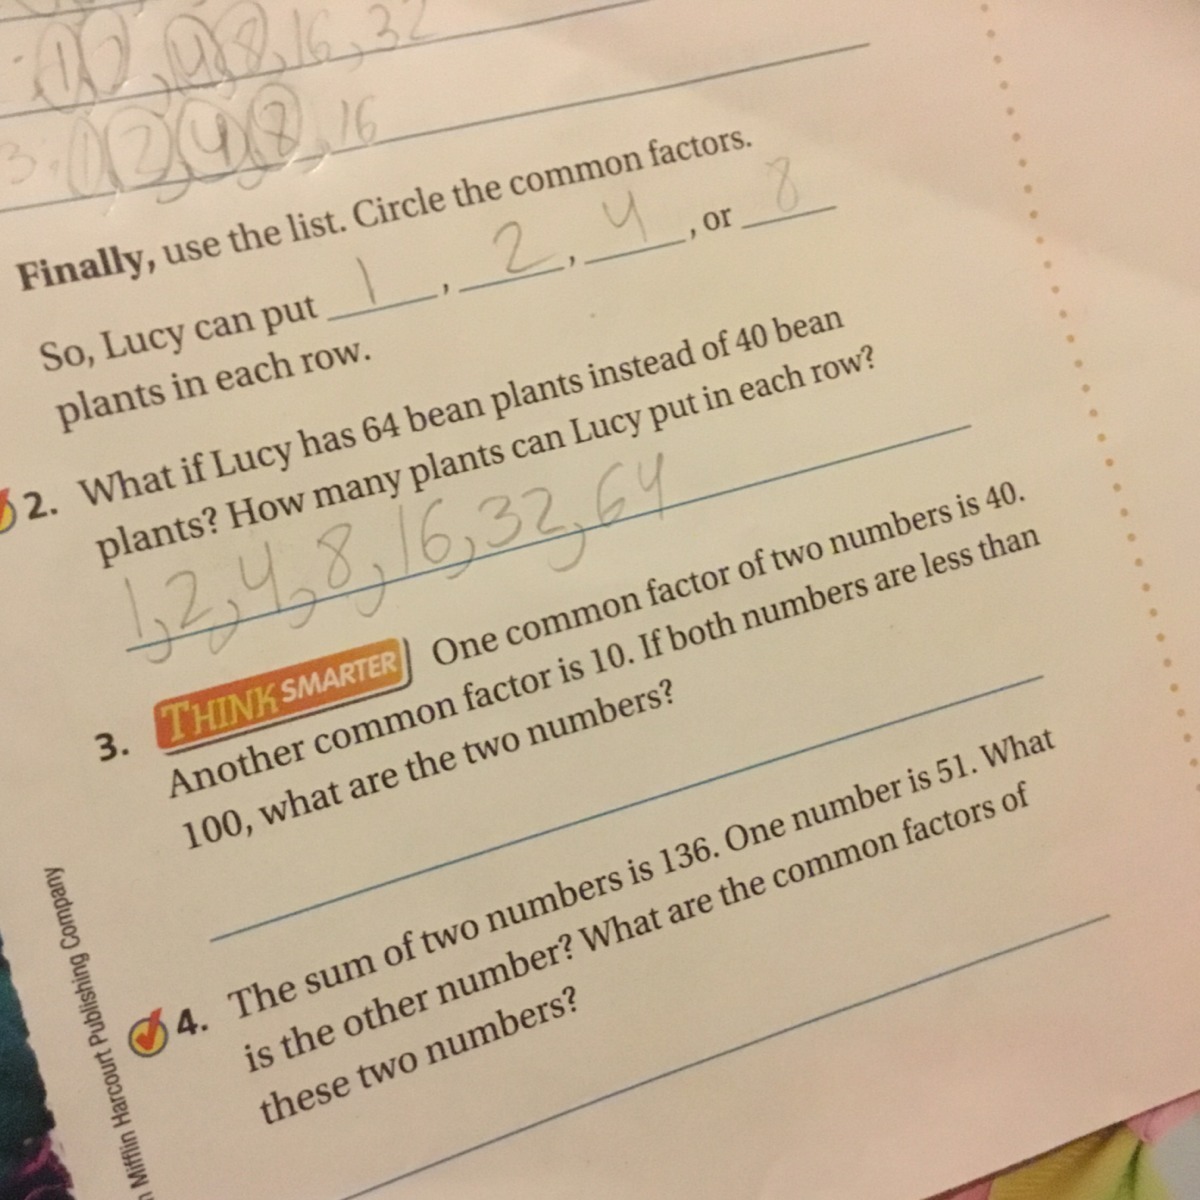 1, 2, 4, 8, 16, 32
3: 1, 2, 4, 8, 16
Finally, use the list. Circle the common factors.
So, Lucy can put 1, 2, 4, or 8
plants in each row.
2. What if Lucy has 64 bean plants instead of 40 bean
plants? How many plants can Lucy put in each row?
1, 2, 4, 8, 16, 32, 64
3. THINK SMARTER One common factor of two numbers is 40.
Another common factor is 10. If both numbers are less than
100, what are the two numbers?
4. The sum of two numbers is 136. One number is 51. What
is the other number? What are the common factors of
these two numbers?
Mifflin Harcourt Publishing Company